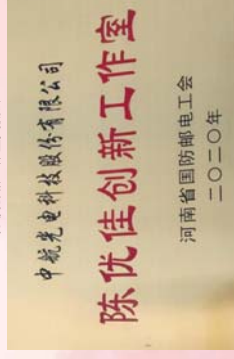 中航光电科技股份有限公司
陈优佳创新工作室
河南省国防邮电工会
二〇二〇年